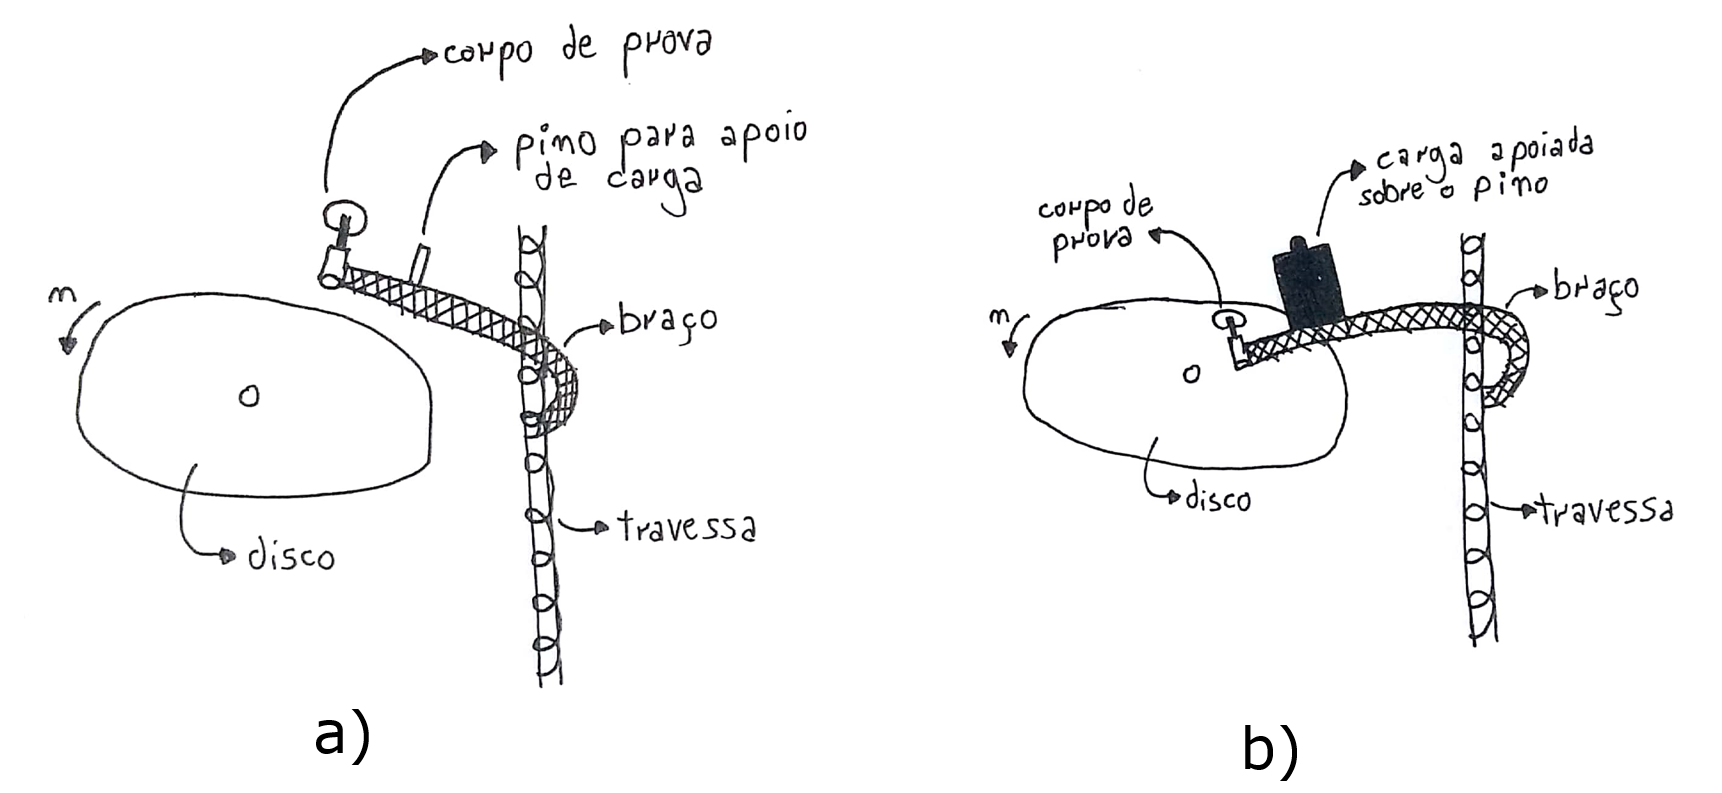 corpo de prova
pino para apoio
de carga
n
braço
travessa
disco
a)
carga apoiada
sobre o pino
corpo de
prova
n
braço
disco
travessa
b)